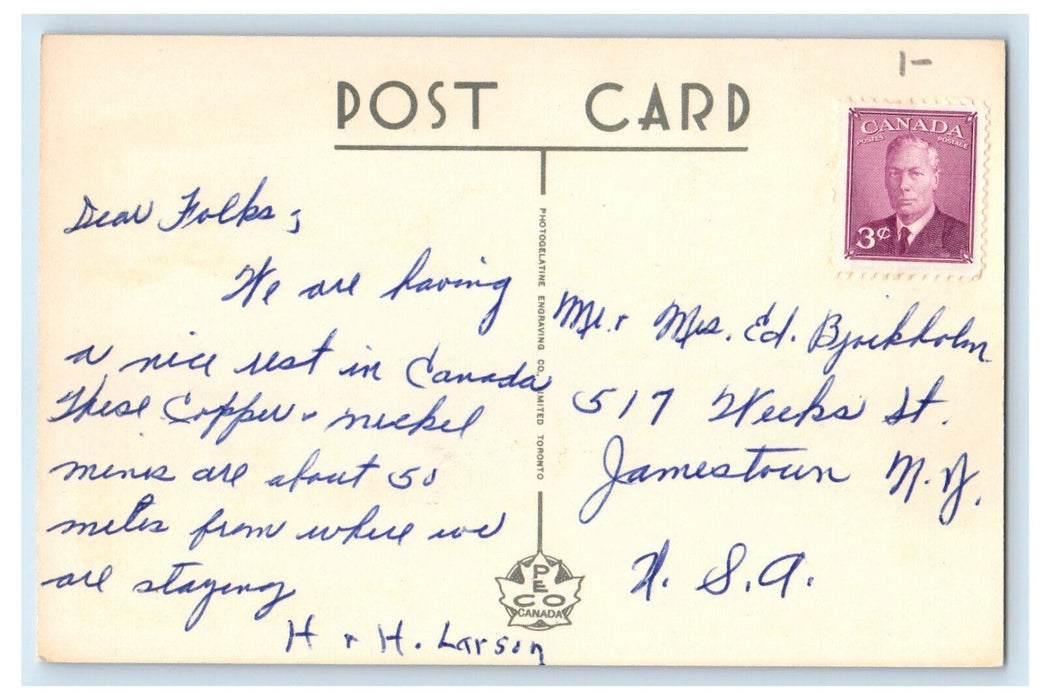 1-
POST CARD
CANADA
POSTES POSTAGE
3¢
Dear Folks,
We are having
a nice rest in Canada
These Copper + nickel
mines are about 50
miles from where we
are staying
H + H. Larson
PHOTOGELATINE ENGRAVING CO. LIMITED TORONTO
PECO
CANADA
Mr. + Mrs. Ed. Bjorkholm
517 Weeks St.
Jamestown N.Y.
U.S.A.